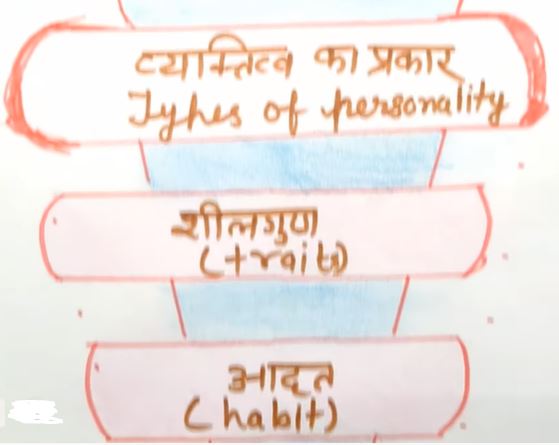 व्यक्तित्व का प्रकार
Types of personality
शीलगुण
(traits)
आदत
(habit)